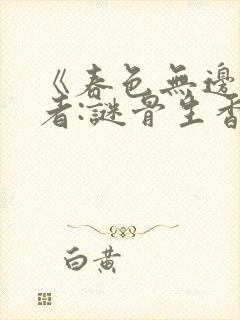 《春色無邊
者:謎骨生香
白黄